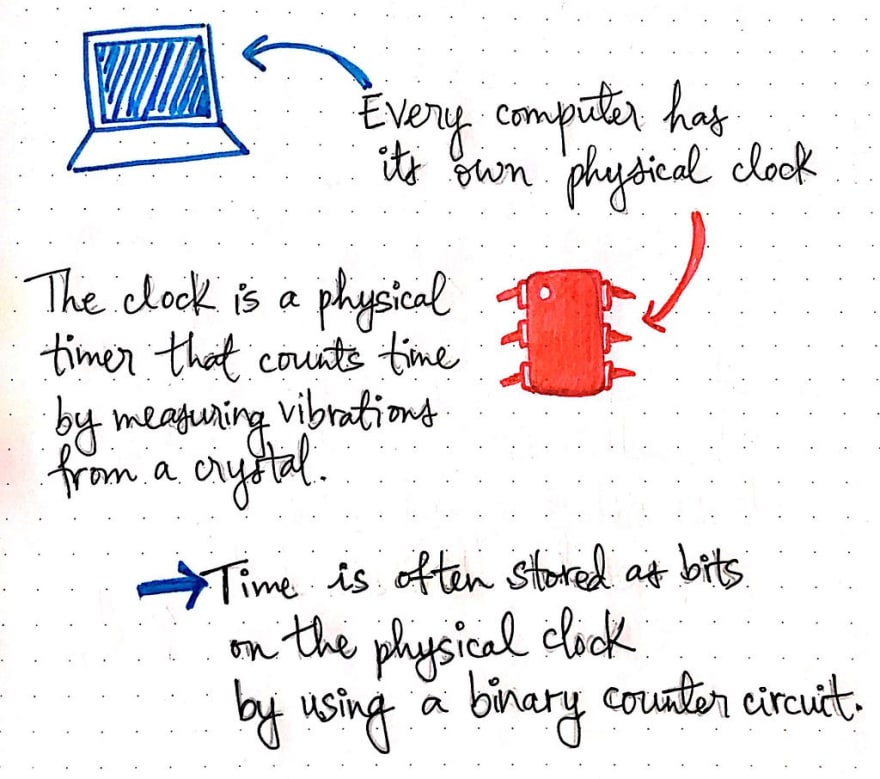 Every computer has
its own physical clock
The clock is a physical
timer that counts time
by measuring vibrations
from a crystal.
Time is often stored as bits
on the physical clock
by using a binary counter circuit.